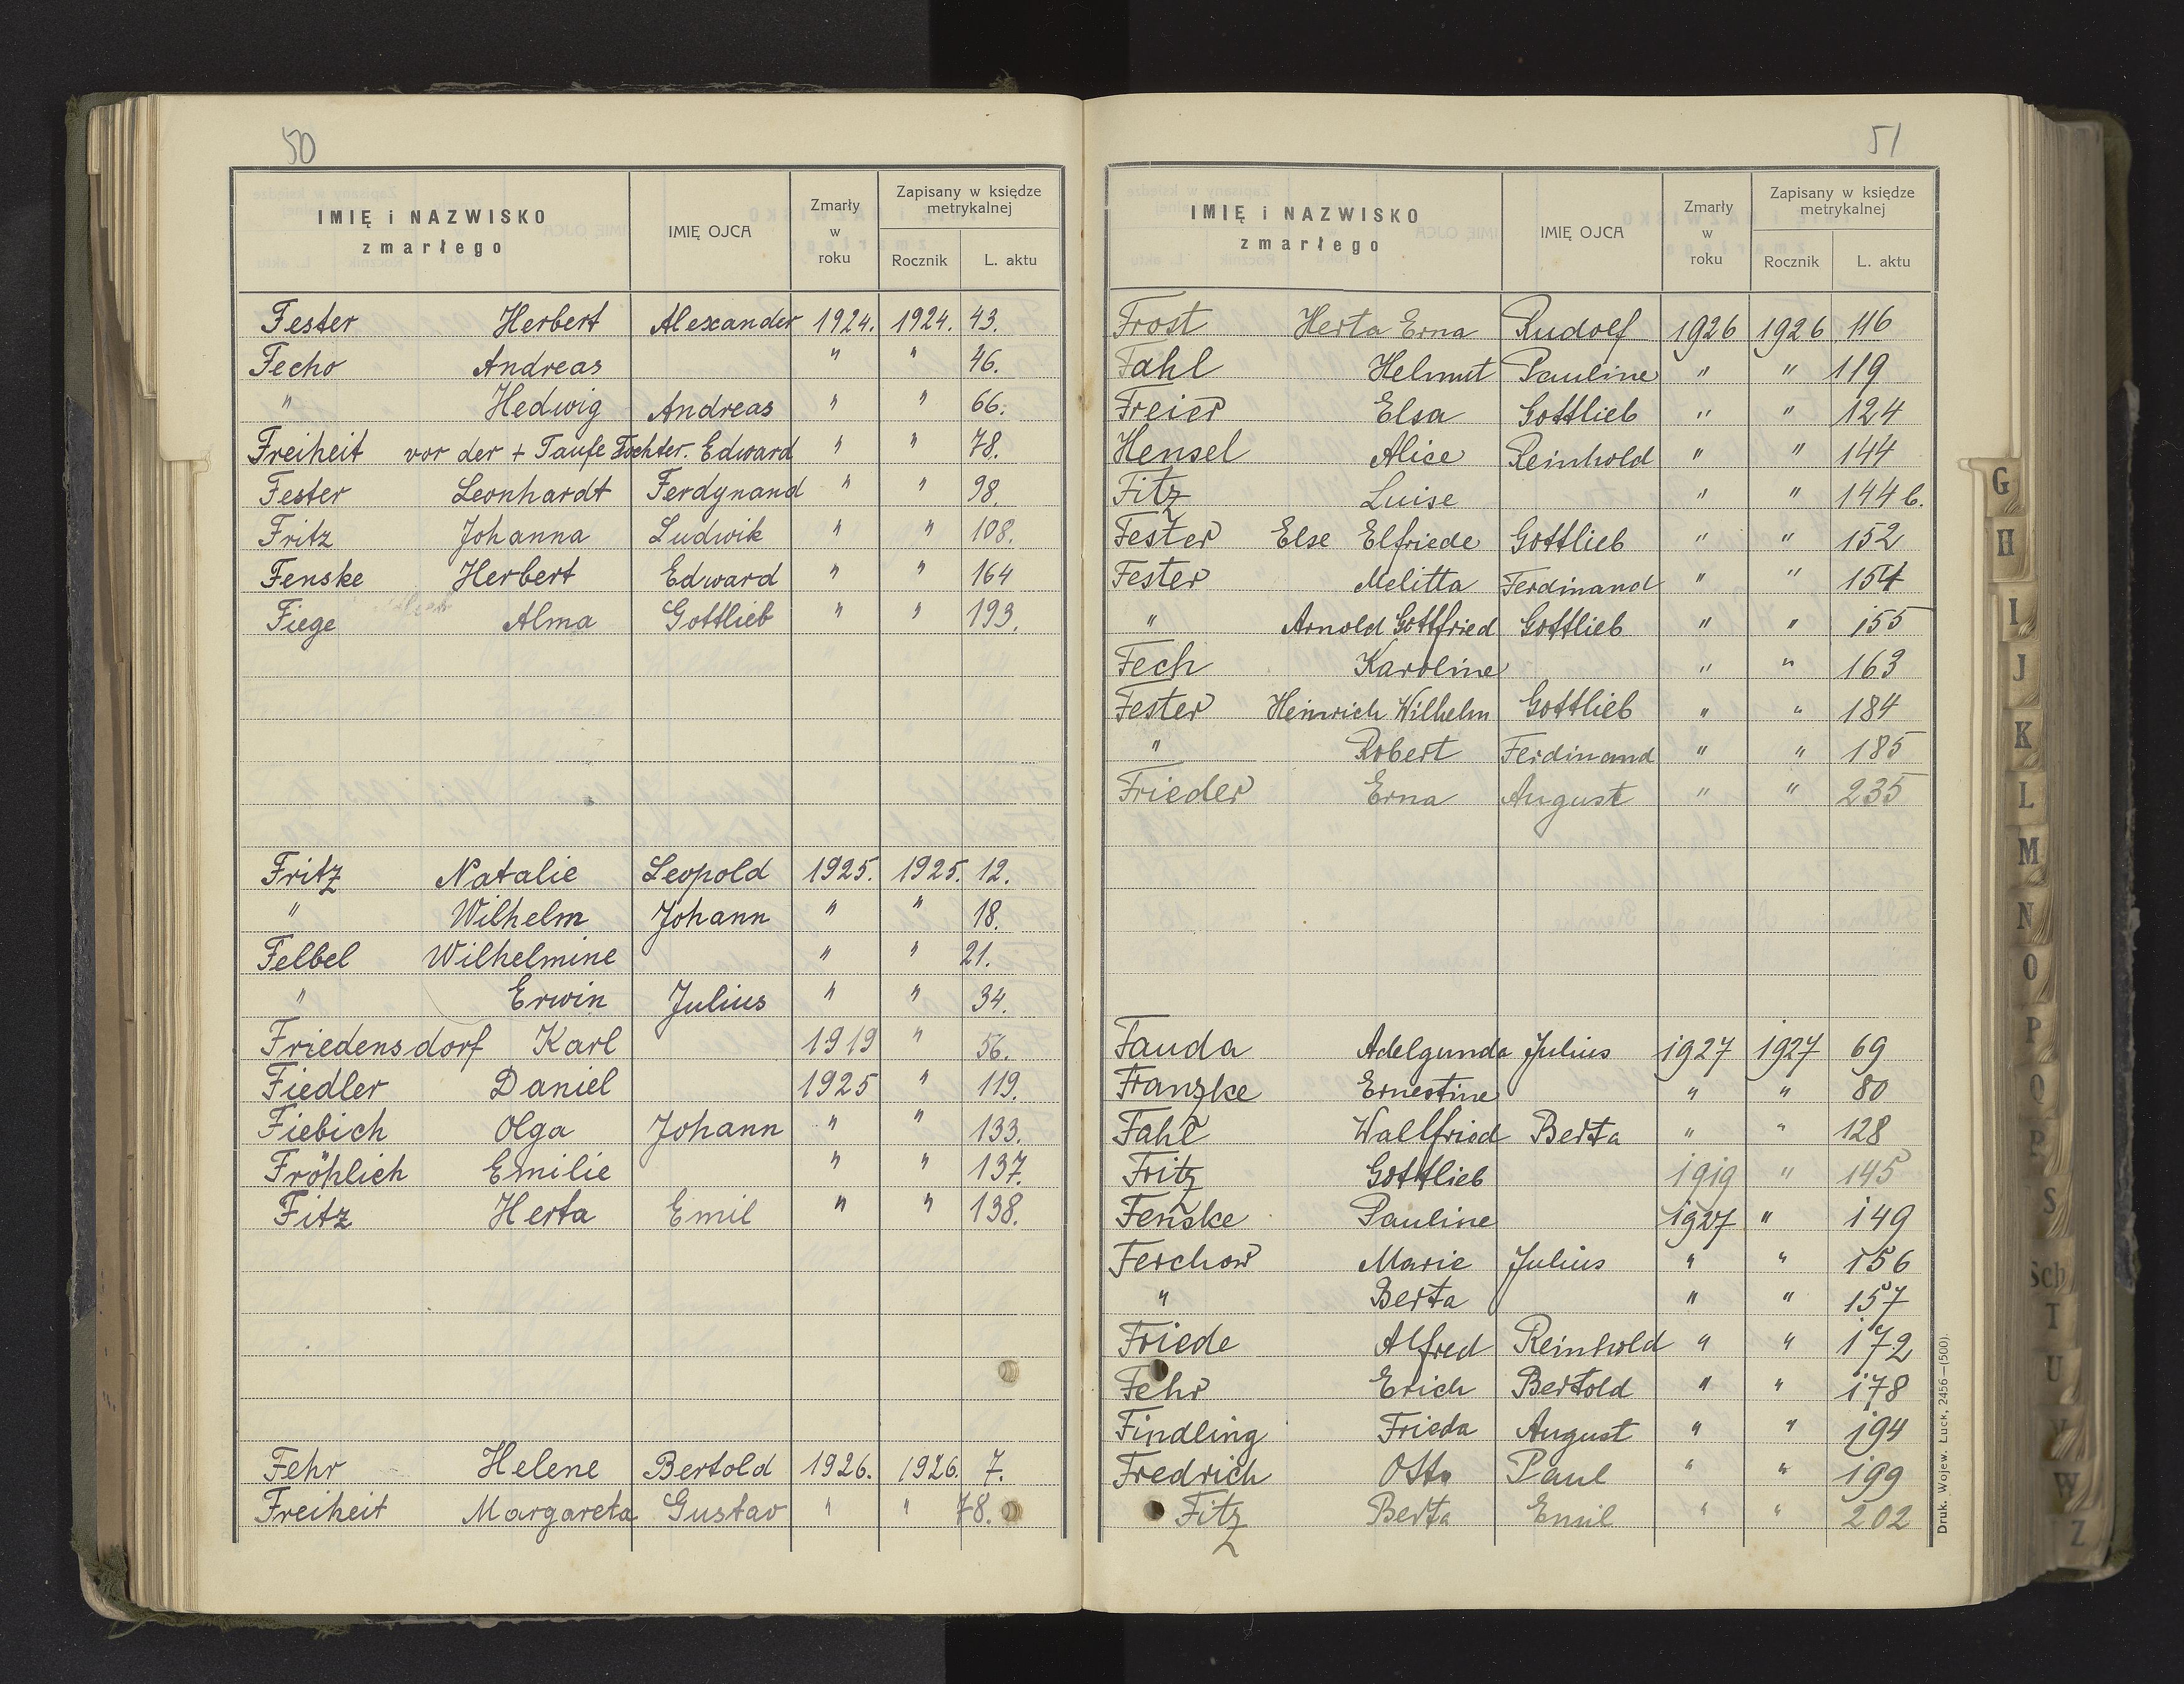 50
IMIĘ i NAZWISKO zmarłego IMIĘ OJCA Zmarły w roku Zapisany w księdze metrykalnej Rocznik L. aktu
Fester Herbert Alexander 1924. 1924. 43.
Fecho Andreas " " 46.
" Hedwig Andreas " " 66.
Freiheit vor der + Taufe Tochter. Edward " " 78.
Fester Leonhardt Ferdynand " " 98.
Fritz Johanna Ludwik " " 108.
Fenske Herbert Edward " " 164
Fiege Alma Gottlieb " " 193.
Fritz Natalie Leopold 1925. 1925. 12.
" Wilhelm Johann " " 18.
Felbel Wilhelmine " " 21.
" Erwin Julius " " 34.
Friedensdorf Karl 1919 " 56.
Fiedler Daniel 1925 " 119.
Fiebich Olga Johann " " 133.
Fröhlich Emilie " " 137.
Fitz Herta Emil " " 138.
Fehr Helene Bertold 1926. 1926. 7.
Freiheit Margareta Gustav " " 78.
51
IMIĘ i NAZWISKO zmarłego IMIĘ OJCA Zmarły w roku Zapisany w księdze metrykalnej Rocznik L. aktu
Frost Herta Erna Rudolf 1926 1926 116
Fahl Helmut Pauline " " 119
Freier Elsa Gottlieb " " 124
Hensel Alice Reinhold " " 144
Fitz Luise " " 144 b.
Fester Else Elfriede Gottlieb " " 152
Fester Melitta Ferdinand " " 154
" Arnold Gottfried Gottlieb " " 155
Fech Karoline " " 163
Fester Heinrich Wilhelm Gottlieb " " 184
" Robert Ferdinand " " 185
Frieder Erna August " " 235
Fauda Adelgunda Julius 1927 1927 69
Franzke Ernestine " " 80
Fahl Wallfried Berta " " 128
Fritz Gottlieb 1919 " 145
Fenske Pauline 1927 " 149
Ferchow Marie Julius " " 156
" Berta " " 157
Friede Alfred Reinhold " " 172
Fehr Erich Bertold " " 178
Findling Frieda August " " 194
Fredrich Otto Paul " " 199
Fitz Berta Emil " " 202
Druk. Wojew. Łuck, 2456—(500).
G
H
I
J
K
L
M
N
O
P
Q
R
S
Sch
T
U
V
W
Z